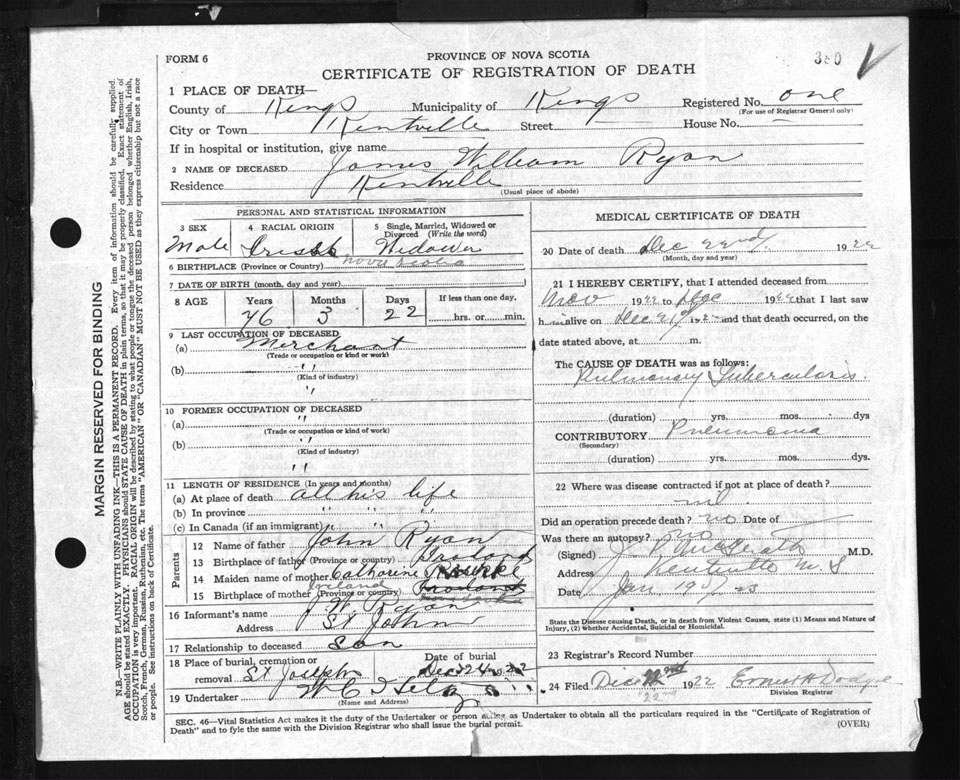 FORM 6
PROVINCE OF NOVA SCOTIA
380
CERTIFICATE OF REGISTRATION OF DEATH
1 PLACE OF DEATH—
County of Kings Municipality of Kings Registered No. one
(For use of Registrar General only)
City or Town Kentville Street House No.
If in hospital or institution, give name
2 NAME OF DECEASED James William Ryan
Residence Kentville
(Usual place of abode)
PERSONAL AND STATISTICAL INFORMATION
3 SEX 4 RACIAL ORIGIN 5 Single, Married, Widowed or Divorced (Write the word)
Male Irish Widower
6 BIRTHPLACE (Province or Country) Nova Scotia
7 DATE OF BIRTH (month, day and year)
8 AGE Years Months Days If less than one day,
76 3 22 hrs. or min.
9 LAST OCCUPATION OF DECEASED
(a) Merchant
(Trade or occupation or kind or work)
(b) "
(Kind of industry)
10 FORMER OCCUPATION OF DECEASED
(a) "
(Trade or occupation or kind of work)
(b) "
(Kind of industry)
"
11 LENGTH OF RESIDENCE (In years and months)
(a) At place of death all his life
(b) In province " " "
(c) In Canada (if an immigrant) " " "
Parents
12 Name of father John Ryan
13 Birthplace of father (Province or country) Ireland
14 Maiden name of mother Catharine
15 Birthplace of mother (Province or country) Ireland
16 Informant's name J W Ryan
Address St John
17 Relationship to deceased Son
18 Place of burial, cremation or removal St Joseph Date of burial Dec 24 22
19 Undertaker W C
(Name and Address)
MEDICAL CERTIFICATE OF DEATH
20 Date of death Dec 22nd 1922
(Month, day and year)
21 I HEREBY CERTIFY, that I attended deceased from
Nov 1922 to Dec 1922 that I last saw
h im alive on Dec 21st 1922 and that death occurred, on
date stated above, at m.
The CAUSE OF DEATH was as follows:
Pulmonary Tuberculosis.
(duration) yrs. mos. dys
CONTRIBUTORY Pneumonia
(Secondary)
(duration) yrs. mos. dys.
22 Where was disease contracted if not at place of death?
Did an operation precede death? no Date of
Was there an autopsy? no
(Signed) M.D.
Address Kentville N. S
Date Jan 19 23
State the Disease causing Death, or in death from Violent Causes, state (1) Means and Nature of Injury, (2) whether Accidental, Suicidal or Homicidal.
23 Registrar's Record Number
24 Filed Dec 22nd 1922 Ernest H Dodge
22
Division Registrar
SEC. 46—Vital Statistics Act makes it the duty of the Undertaker or person acting as Undertaker to obtain all the particulars required in the "Certificate of Registration of
Death" and to fyle the same with the Division Registrar who shall issue the burial permit.
(OVER)
MARGIN RESERVED FOR BINDING
N.B.—WRITE PLAINLY WITH UNFADING INK—THIS IS A PERMANENT RECORD. Every item of information should be carefully supplied.
AGE should be stated EXACTLY. PHYSICIANS should STATE CAUSE OF DEATH in plain terms, so that it may be properly classified. Exact statement of
OCCUPATION is very important. RACIAL ORIGIN will be described by stating to what people or tongue the deceased person belonged whether English, Irish,
Scotch, French, German, Russian, Ruthenian, etc. The terms "AMERICAN" OR "CANADIAN" MUST NOT BE USED as they express citizenship but not a race
or people. See instructions on back of Certificate.